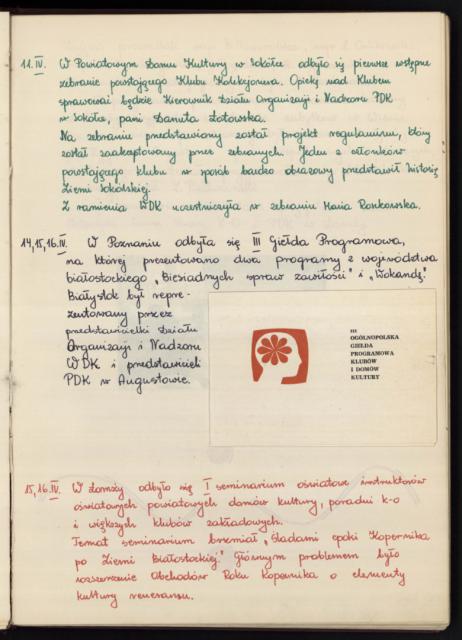 11.IV. W Powiatowym Domu Kultury w Sokółce odbyło się pierwsze wstępne
zebranie powstającego Klubu Kolekcjonera. Opiekę nad Klubem
sprawować będzie Kierownik Działu Organizacji i Nadzoru PDK
w Sokółce, pani Danuta Łotowska.
Na zebraniu przedstawiony został projekt regulaminu, który
został zaakceptowany przez zebranych. Jeden z członków
powstającego klubu w sposób bardzo obrazowy przedstawił historię
Ziemi Sokólskiej.
Z ramienia WDK uczestniczyła w zebraniu Maria Ronkowska.
14,15,16.IV. W Poznaniu odbyła się III Giełda Programowa,
na której prezentowano dwa programy z województwa
białostockiego „Biesiadnych spraw zawiłości" i „Wokandę".
Białystok był repre-
zentowany przez
przedstawicielki Działu
Organizacji i Nadzoru
WDK i przedstawicieli
PDK w Augustowie.
III
OGÓLNOPOLSKA
GIEŁDA
PROGRAMOWA
KLUBÓW
I DOMÓW
KULTURY
15,16.IV. W Łomży odbyło się I seminarium oświatowe instruktorów
oświatowych powiatowych domów kultury, poradni k-o
i większych klubów zakładowych.
Temat seminarium brzmiał „Śladami epoki Kopernika
po Ziemi Białostockiej." Głównym problemem było
rozszerzenie Obchodów Roku Kopernika o elementy
kultury renesansu.